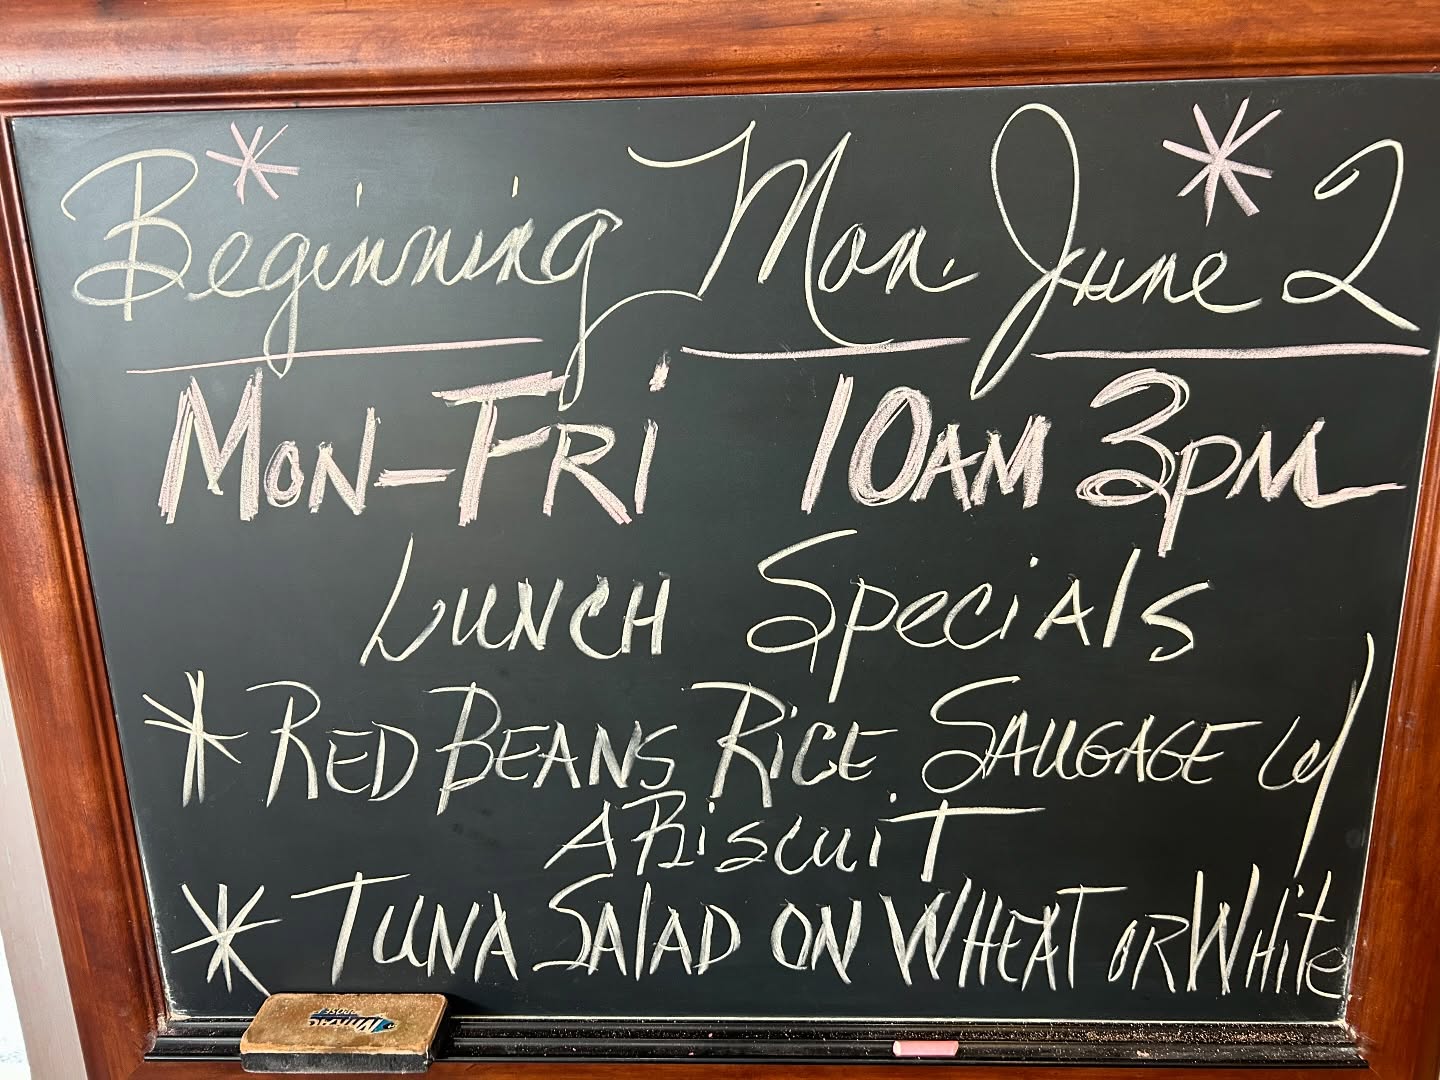 Beginning Mon. June 2
MON-FRI 10AM 3PM
LUNCH Specials
* RED BEANS RICE SAUGAGE w/
A BiscuiT
* TUNA SAlAD ON WHEAT OR WHite